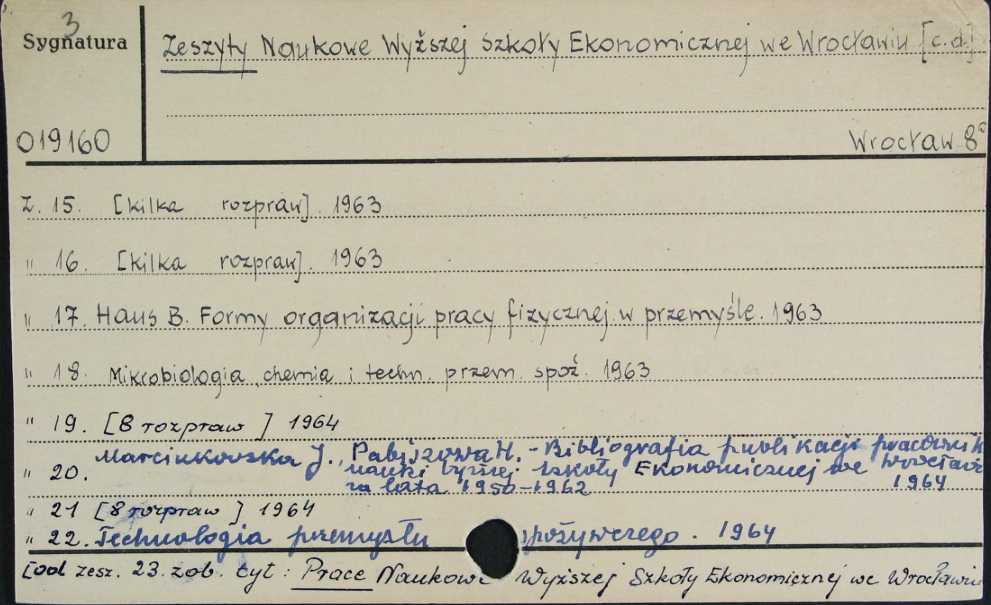 3
Sygnatura
Zeszyty Naukowe Wyższej Szkoły Ekonomicznej we Wrocławiu [c.d.]
019160
Wrocław 8°
Z. 15. [kilka rozpraw]. 1963
" 16. [kilka rozpraw]. 1963
" 17. Haus B. Formy organizacji pracy fizycznej w przemyśle. 1963
" 18. Mikrobiologia, chemia i techn. przem. spoż. 1963
" 19. [8 rozpraw] 1964
" 20. Marcinkowska J., Pabiszowa H. - Bibliografia publikacji pracownik
nauki Wyższej Szkoły Ekonomicznej we Wrocław
za lata 1950-1962 1964
" 21 [8 rozpraw] 1964
" 22. Technologia przemysłu spożywczego. 1964
[od zesz. 23. zob. tyt: Prace Naukowe Wyższej Szkoły Ekonomicznej we Wrocławiu